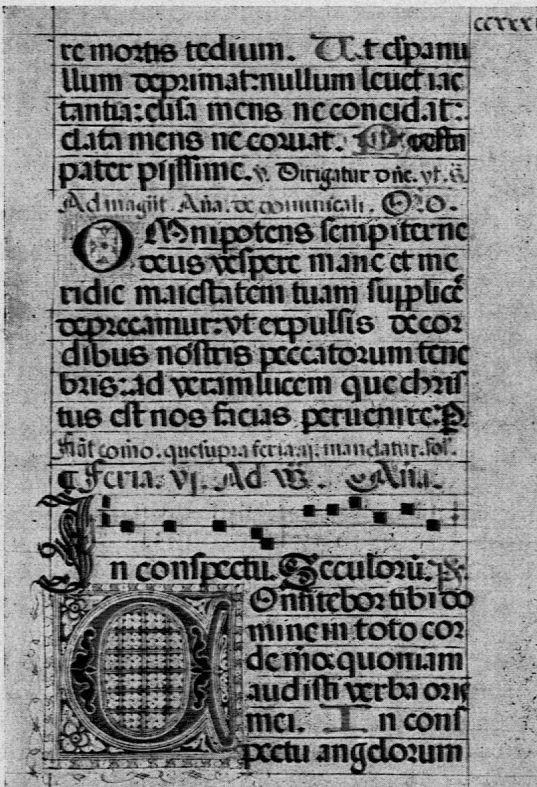 ccxxxi
re mortis tedium. Ut clpa nu
llum deprimat: nullum leuet iac
tantia: elisa mens ne concidat:
elata mens ne coruat. Presta
pater pijssime. v. Dirigatur dñe. vt. s̃
Ad magñt. Aña. de comunicali. Oro.
OMnipotens sempiterne
deus vespere mane et me
ridie maiestatem tuam supplicẽ
deprecamur: vt expulsis de cor
dibus nostris peccatorum tene
bris: ad veram lucem que chris
tus est nos facias peruenire: P.
fiãt como. que supra feria. ij. mandatur. sol.
¶ Feria. vj. Ad Vs̃. Aña.
In conspectu. Seculorũ. ps.
COnfitebor tibi do
mine in toto cor
de meo: quoniam
audisti verba oris
mei. In cons
pectu angelorum